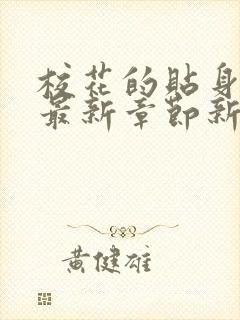 校花的貼身
最新章節新
黃健雄